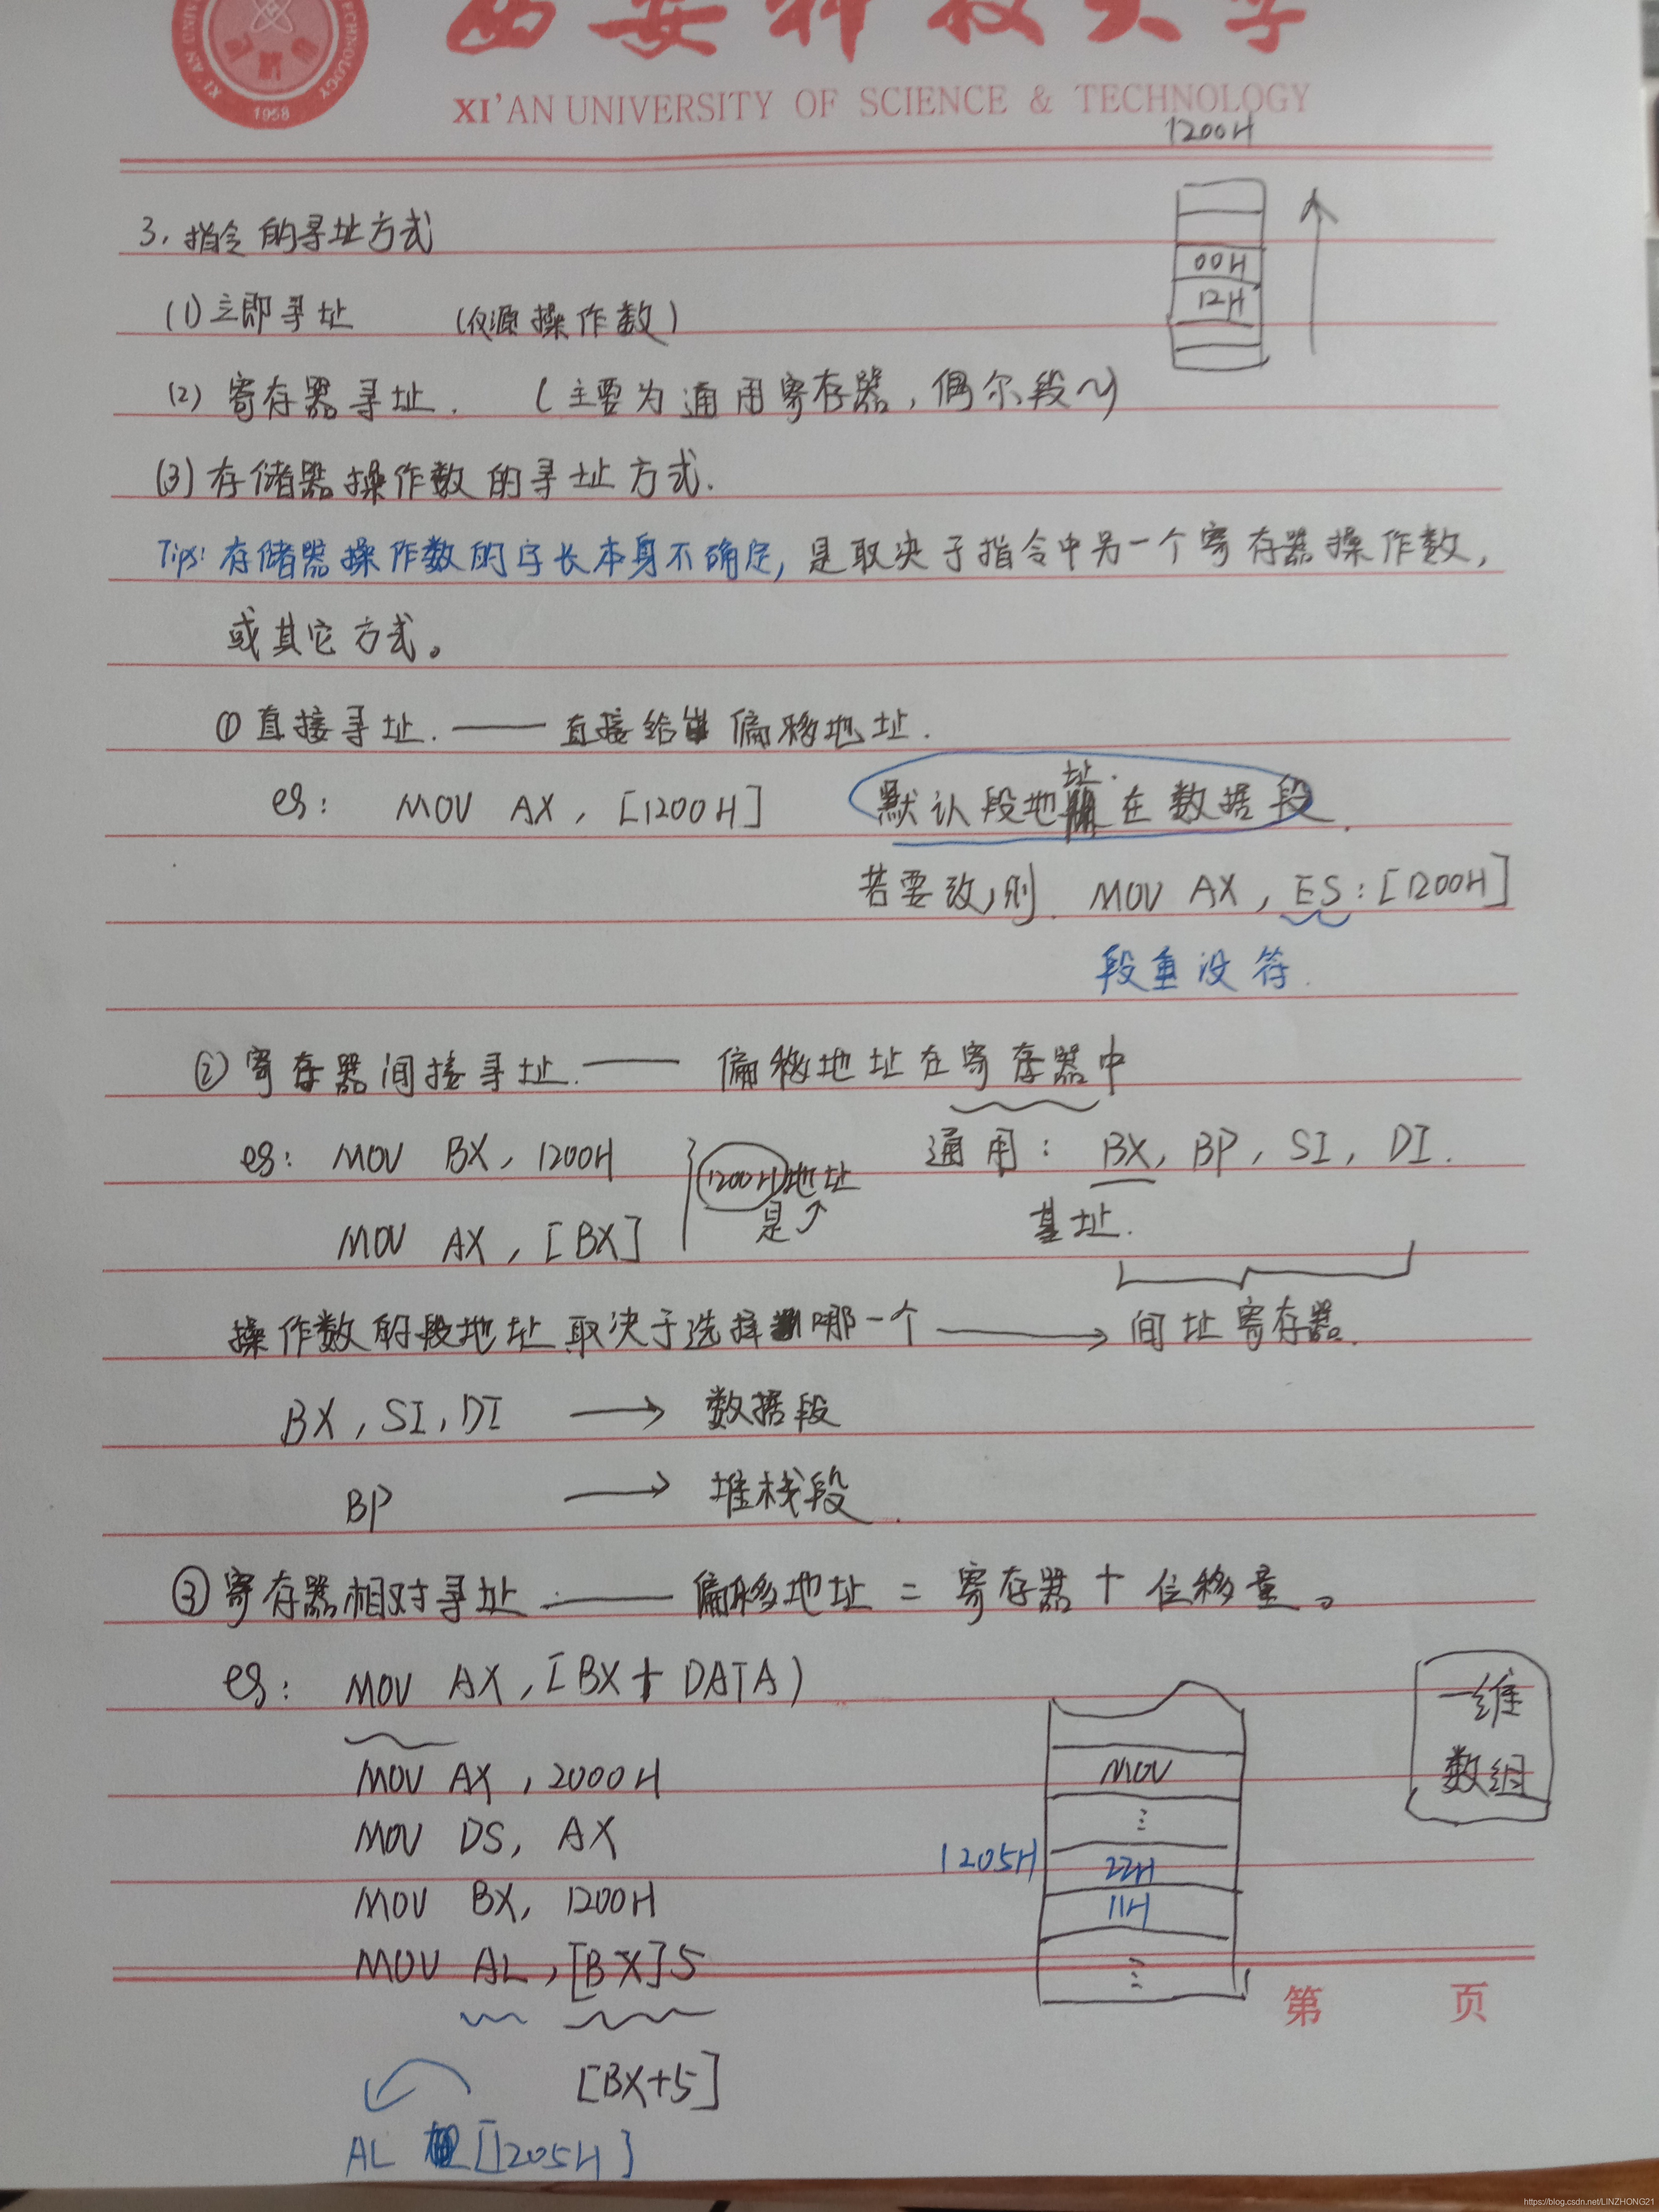 西安科技大学
XI'AN UNIVERSITY OF SCIENCE & TECHNOLOGY
1958
1200H
3. 指令的寻址方式
00H
12H
(1) 立即寻址 (仅源操作数)
(2) 寄存器寻址. (主要为通用寄存器, 偶尔段~)
(3) 存储器操作数的寻址方式.
Tips: 存储器操作数的字长本身不确定, 是取决于指令中另一个寄存器操作数,
或其它方式。
① 直接寻址. —— 直接给出偏移地址.
eg: MOV AX, [1200H] 默认段地址在数据段.
若要改,则 MOV AX, ES:[1200H]
段重设符.
② 寄存器间接寻址. —— 偏移地址在寄存器中
eg: MOV BX, 1200H 1200H 地址 通用: BX, BP, SI, DI.
是 基址.
MOV AX, [BX]
操作数的段地址取决于选择哪一个 → 间址寄存器.
BX, SI, DI → 数据段
BP → 堆栈段.
③ 寄存器相对寻址 —— 偏移地址 = 寄存器 + 位移量。
eg: MOV AX, [BX + DATA)
一维
数组
MOV AX, 2000H MOV
MOV DS, AX ⋮
1205H 22H
MOV BX, 1200H 11H
MOV AL, [BX]5 ⋮
第 页
[BX+5]
AL [1205H]
https://blog.csdn.net/LINZHONG21